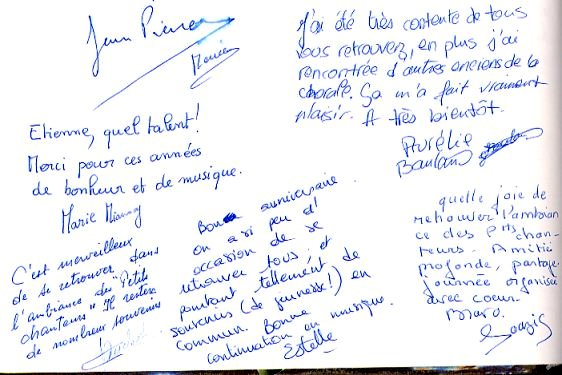 Jean Pierre
J'ai été très contente de tous
vous retrouver, en plus j'ai
rencontrée d'autres anciens de la
chorale. Ça m'a fait vraiment
plaisir. A très bientôt.
Aurélie
Etienne, quel talent!
Merci pour ces années
de bonheur et de musique.
Marie
C'est merveilleux
de se retrouver dans
l'ambiance des "Petits
chanteurs" Il restera
de nombreux souvenirs
Bon anniversaire.
on a si peu d'
occasion de se
retrouver tous, et
pourtant tellement de
souvenirs (de jeunesse!) en
commun. Bonne
continuation en musique.
Estelle
quelle joie de
retrouver l'ambian
ce des Pts chan-
teurs. Amitié
profonde, partage,
journée organisée
avec coeur.
Bravo.